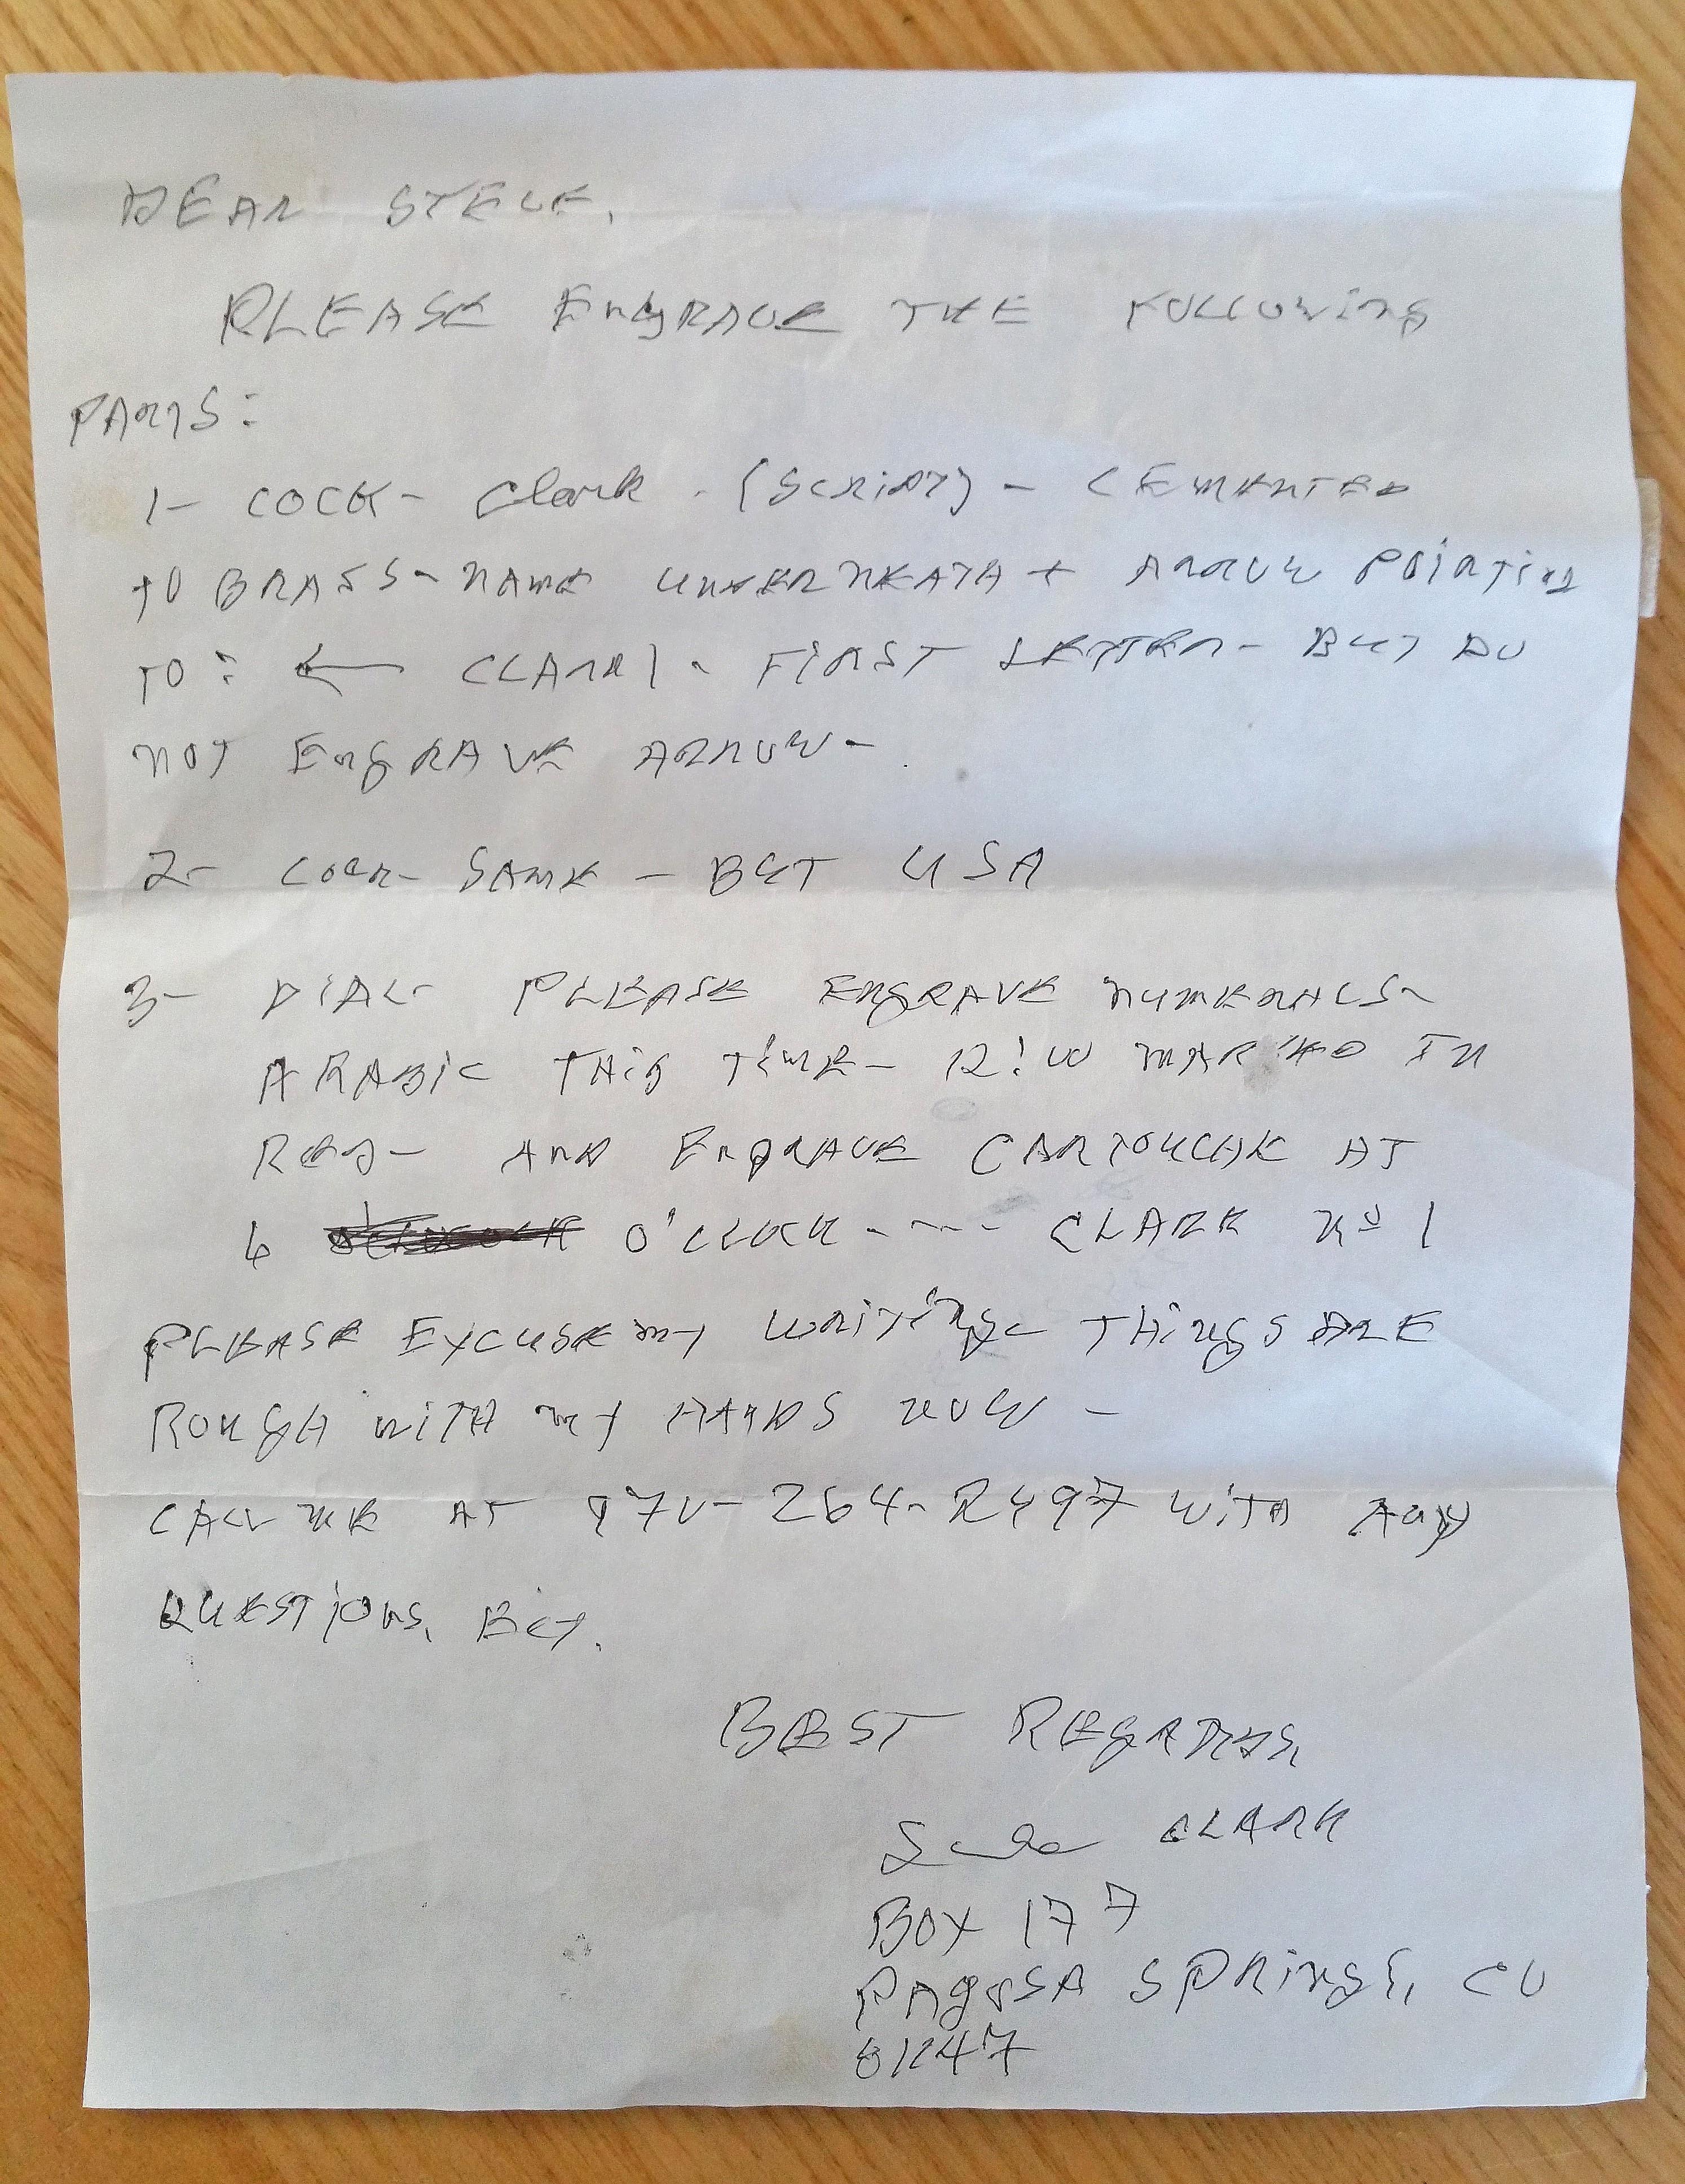 DEAR STEVE,
PLEASE ENGRAVE THE FOLLOWING
PARTS:
1- COCK- Clark - (SCRIPT) - CEMENTED
TO BRASS- NAME UNDERNEATH + ARROW POINTING
TO: ← CLARK - FIRST LETTER- BUT DO
NOT ENGRAVE ARROW-
2- COCK- SAME - BUT USA
3- DIAL- PLEASE ENGRAVE NUMERALS-
ARABIC THIS TIME- 12:00 MARKED IN
RED- AND ENGRAVE CARTOUCHE AT
6 O'CLOCK - --- CLARK Nº 1
PLEASE EXCUSE MY WRITING- THINGS ARE
ROUGH WITH MY HANDS NOW -
CALL ME AT 970-264-2497 WITH ANY
QUESTIONS,
BEST REGARDS,
CLARK
BOX 177
PAGOSA SPRINGS, CO
81147